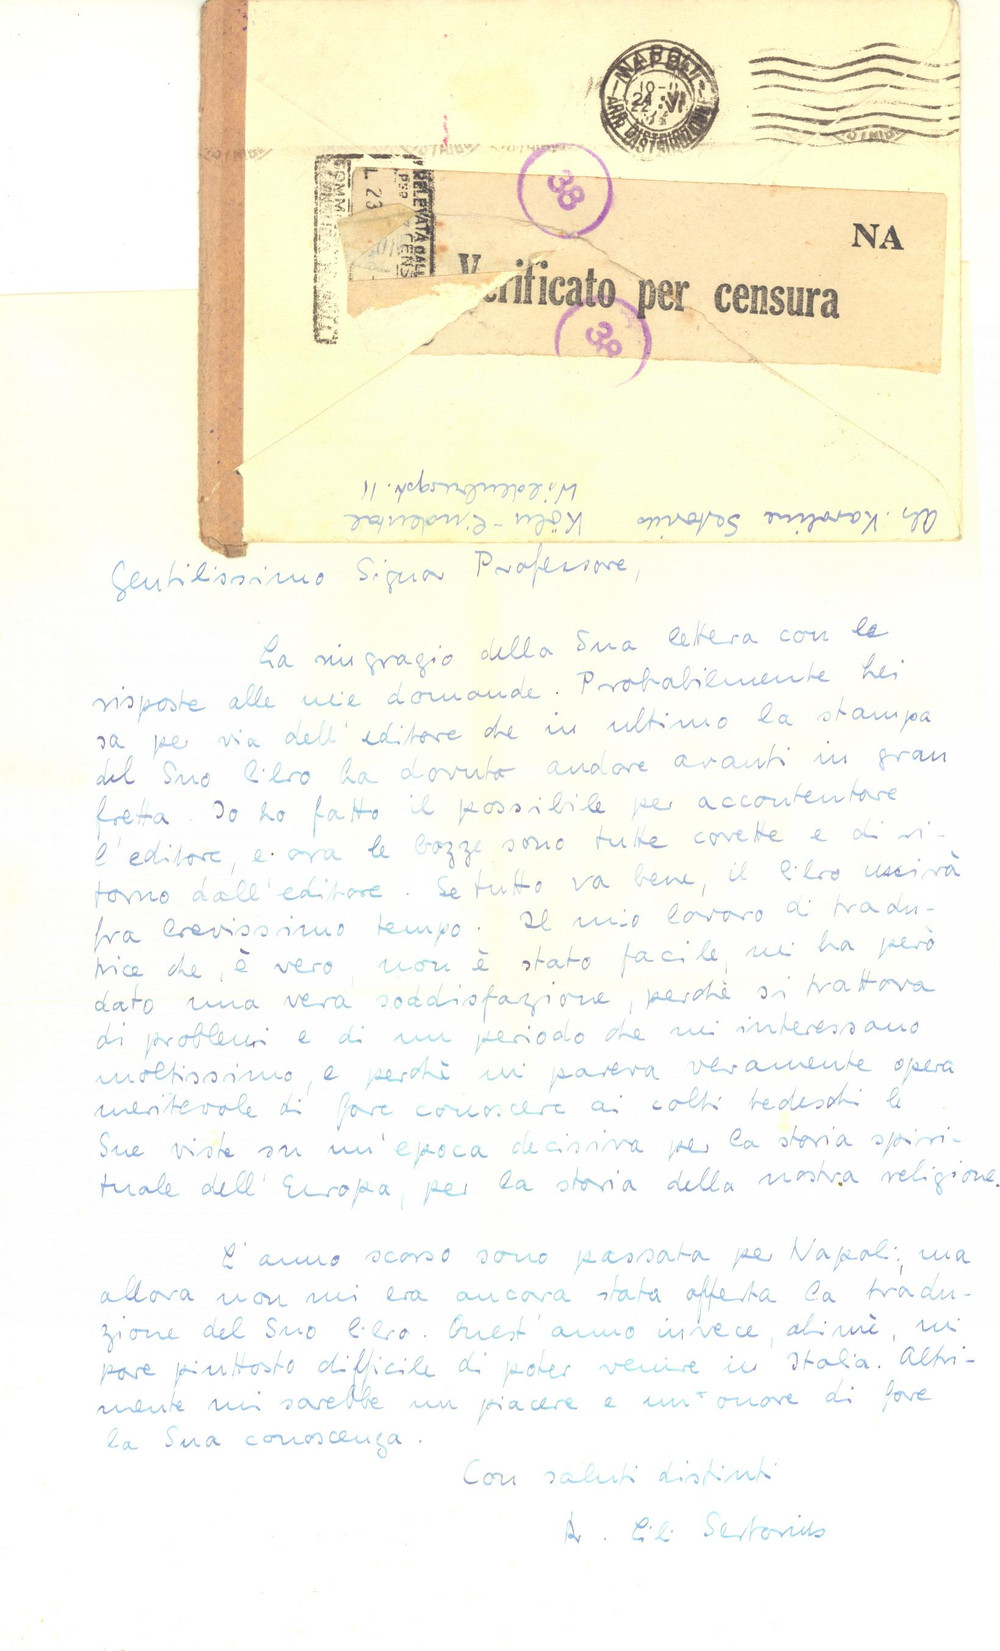 NAPOLI
ARR. DISTRIBUZIONE
38
NA
Verificato per censura
38
RELEVATA DALL
PER CENS
Abs. Karoline Sertorius Köln-Lindenthal
Wildenburgstr. 11
Gentilissimo Signor Professore,
La ringrazio della Sua lettera con le
risposte alle mie domande. Probabilmente Lei
sa per via dell'editore che in ultimo la stampa
del Suo libro ha dovuto andare avanti in gran
fretta. Io ho fatto il possibile per accontentare
l'editore, e ora le bozze sono tutte corrette e di ri-
torno dall'editore. Se tutto va bene, il libro uscirà
fra brevissimo tempo. Il mio lavoro di tradu-
trice che, è vero, non è stato facile, mi ha però
dato una vera soddisfazione, perchè si trattava
di problemi e di un periodo che mi interessano
moltissimo, e perchè mi pareva veramente opera
meritevole di fare conoscere ai colti tedeschi le
Sue viste su un'epoca decisiva per la storia spiri-
tuale dell'Europa, per la storia della nostra religione.
L'anno scorso sono passata per Napoli, ma
allora non mi era ancora stata offerta la tradu-
zione del Suo libro. Quest'anno invece, ahimè, mi
pare piuttosto difficile di poter venire in Italia. Altri-
mente mi sarebbe un piacere e un'onore di fare
la Sua conoscenza.
Con saluti distinti
Dr. Lili Sertorius